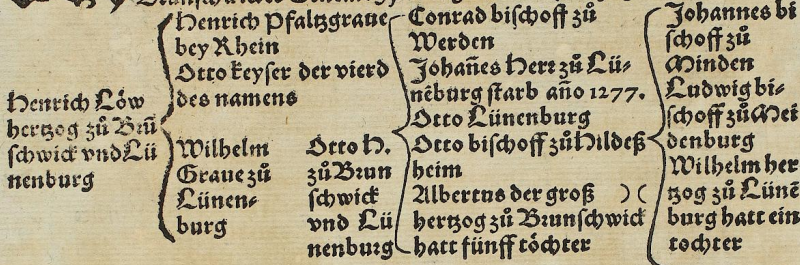 Henrich Löw
hertzog zů Brū
schwick vnd Lü
nenburg
Henrich Pfaltzgraue
bey Rhein
Otto keyser der vierd
des namens
Wilhelm
Graue zů
Lünen-
burg
Otto H.
zů Brun
schwick
vnd Lü
nenburg
Conrad bischoff zů
Werden
Johan̄es Herr zů Lü-
nēburg starb an̄o 1277.
Otto Lünenburg
Otto bischoff zů Hildeß
heim
Albertus der groß )(
hertzog zů Brunschwick
hatt fünff töchter
Johannes bi
schoff zů
Minden
Ludwig bi-
schoff zů Mei
denburg
Wilhelm her
tzog zů Lünē
burg hatt ein
tochter